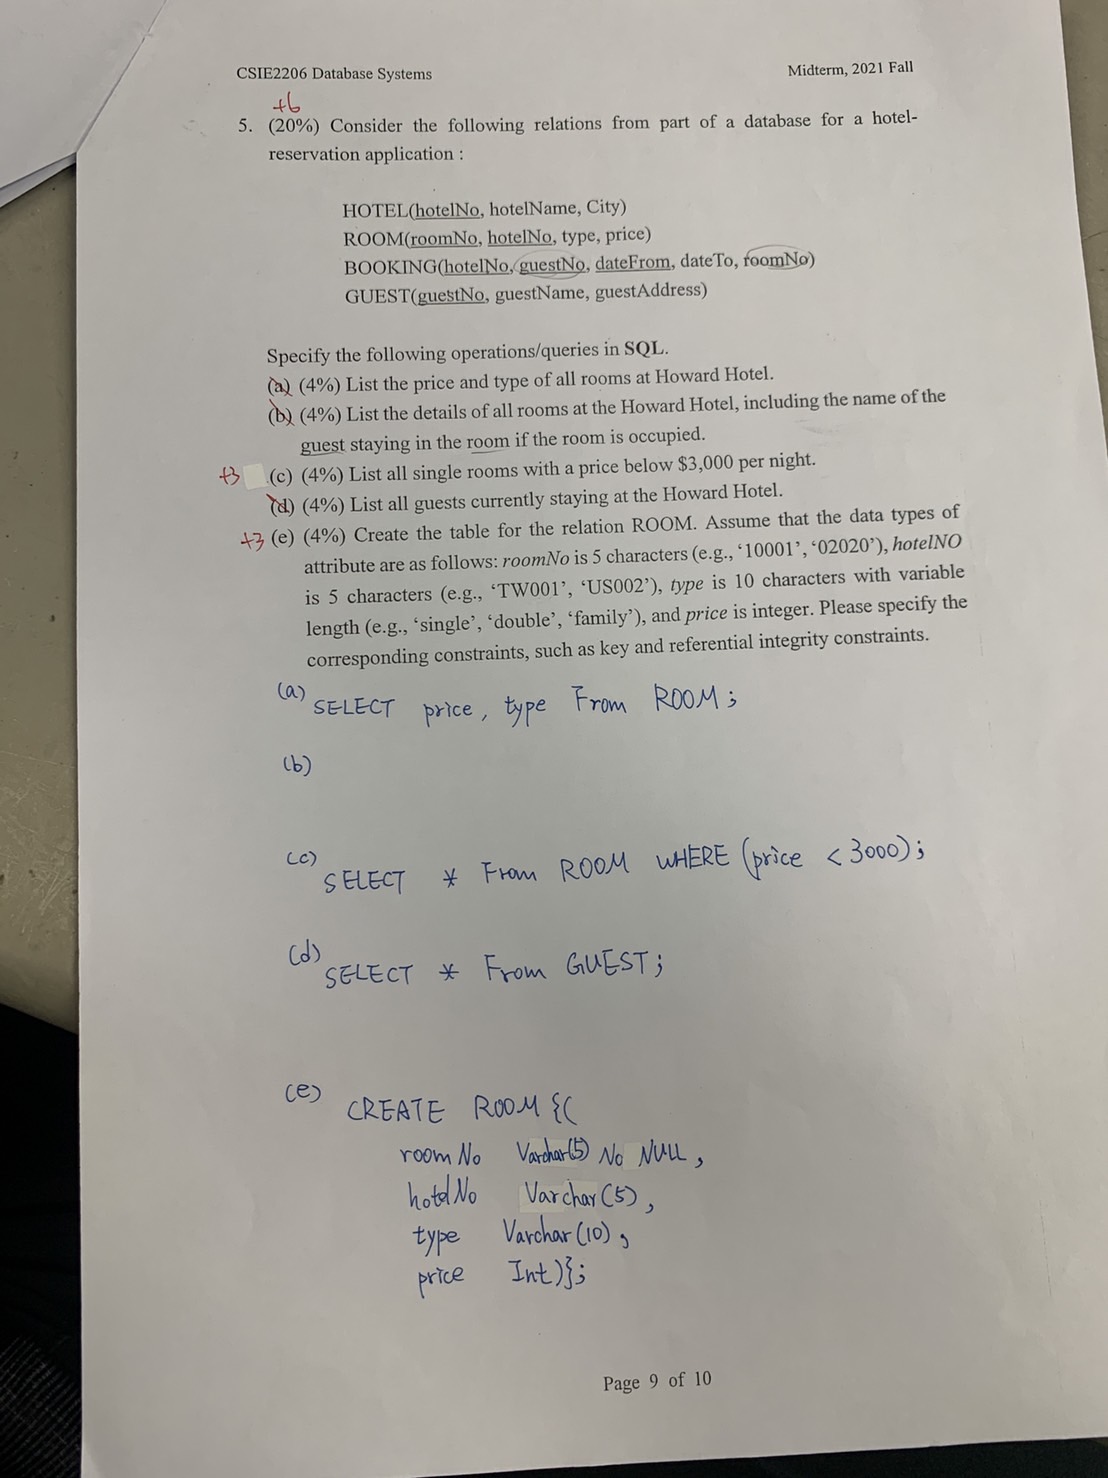 CSIE2206 Database Systems
Midterm, 2021 Fall
+6
5. (20%) Consider the following relations from part of a database for a hotel-
reservation application :
HOTEL(hotelNo, hotelName, City)
ROOM(roomNo, hotelNo, type, price)
BOOKING(hotelNo, guestNo, dateFrom, dateTo, roomNo)
GUEST(guestNo, guestName, guestAddress)
Specify the following operations/queries in SQL.
(a) (4%) List the price and type of all rooms at Howard Hotel.
(b) (4%) List the details of all rooms at the Howard Hotel, including the name of the
guest staying in the room if the room is occupied.
+3 (c) (4%) List all single rooms with a price below $3,000 per night.
(d) (4%) List all guests currently staying at the Howard Hotel.
+3 (e) (4%) Create the table for the relation ROOM. Assume that the data types of
attribute are as follows: roomNo is 5 characters (e.g., ‘10001’, ‘02020’), hotelNO
is 5 characters (e.g., ‘TW001’, ‘US002’), type is 10 characters with variable
length (e.g., ‘single’, ‘double’, ‘family’), and price is integer. Please specify the
corresponding constraints, such as key and referential integrity constraints.
(a) SELECT price, type From ROOM;
(b)
(c) SELECT * From ROOM WHERE (price < 3000);
(d) SELECT * From GUEST;
(e) CREATE ROOM {(
room No Varchar(5) No NULL,
hotel No Varchar(5),
type Varchar(10),
price Int)};
Page 9 of 10